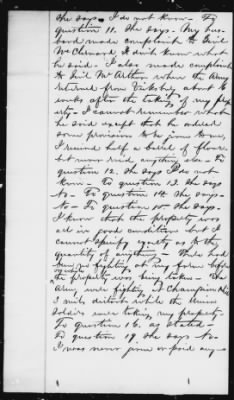 She says I do not know - To
question 11. She says - My hus-
band made complaint to Genl
McClernand I didn't know what
he said. I also made complaint
to Genl McArthur when the Army
returned from Vicksburg about 6
weeks after the taking of my prop
erty - I cannot remember what
he said except that he ordered
some provisions to be given to me,
I received half a barrel of flour
but never rec'd anything else - To
question 12. She says I do not
know - To question 13. She says
no - To question 14. She says -
no - To question 15. She says -
I know that the property was
all in good condition but I
cannot specify exactly as to the
quantity of anything - There had
been no fighting at my house before
the property was being taken - The
Army were fighting at Champion Hill
3 miles distant while the Union
Soldiers were taking my property.
To question 16. as stated -
To question 17. She says - no
I was never given or paid any -